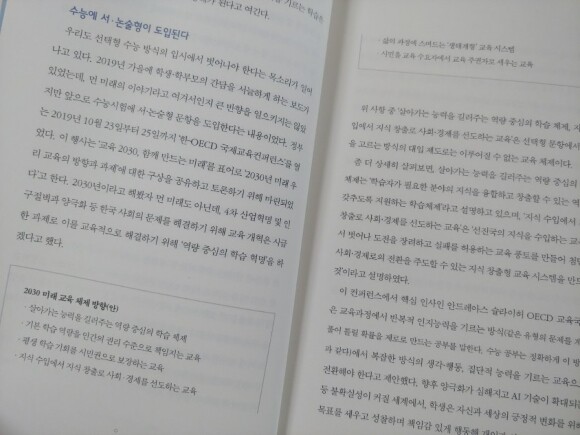 수능에 서·논술형이 도입된다
우리도 선택형 수능 방식의 입시에서 벗어나야 한다는 목소리가 일어
나고 있다. 2019년 가을에 학생·학부모의 간담을 서늘하게 하는 보도가
있었는데, 먼 미래의 이야기라고 여겨서인지 큰 반향을 일으키지는 않았
지만 앞으로 수능시험에 서·논술형 문항을 도입한다는 내용이었다. 정부
는 2019년 10월 23일부터 25일까지 '한-OECD 국제교육컨퍼런스'를 열
었다. 이 행사는 '교육 2030, 함께 만드는 미래'를 표어로 '2030년 미래 우
리 교육의 방향과 과제'에 대한 구상을 공유하고 토론하기 위해 마련되었
다'고 한다. 2030년이라고 해봤자 먼 미래도 아닌데, 4차 산업혁명 및 인
구절벽과 양극화 등 한국 사회의 문제를 해결하기 위해 교육 개혁은 시급
한 과제로 이를 교육적으로 해결하기 위해 '역량 중심의 학습 혁명'을 하
겠다고 했다.
2030 미래 교육 체제 방향(안)
· 살아가는 능력을 길러주는 역량 중심의 학습 체제
· 기본 학습 역량을 인간의 권리 수준으로 책임지는 교육
· 평생 학습 기회를 시민권으로 보장하는 교육
· 지식 수입에서 지식 창출로 사회·경제를 선도하는 교육
· 삶의 과정에 스며드는 '생태계형' 교육 시스템
· 시민을 교육 수요자에서 교육 주권자로 세우는 교육
위 사항 중 '살아가는 능력을 길러주는 역량 중심의 학습 체제, 지
입에서 지식 창출로 사회·경제를 선도하는 교육'은 선택형 문항에서
을 고르는 방식의 대입 제도로는 이루어질 수 없는 교육 체제이다.
좀 더 상세히 살펴보면, 살아가는 능력을 길러주는 역량 중심의
체제는 '학습자가 필요한 분야의 지식을 융합하고 창출할 수 있는 역
갖추도록 지원하는 학습체제'라고 설명하고 있으며, '지식 수입에서
창출로 사회·경제를 선도하는 교육'은 '선진국의 지식을 수입하는 교
서 벗어나 도전을 장려하고 실패를 허용하는 교육 풍토를 만들어 첨단
사회·경제로의 전환을 주도할 수 있는 지식 창출형 교육 시스템을 만드
것'이라고 설명하였다.
이 컨퍼런스에서 핵심 인사인 안드레아스 슐라이허 OECD 교육국
은 교육과정에서 반복적 인지능력을 기르는 방식(같은 유형의 문제를 제
풀이 틀릴 확률을 제로로 만드는 공부를 말한다. 수능 공부는 정확하게 이 방
과 같다)에서 복잡한 방식의 생각·행동, 집단적 능력을 기르는 교육으
전환해야 한다고 제안했다. 향후 양극화가 심해지고 AI 기술이 확대되는
등 불확실성이 커질 세계에서, 학생은 자신과 세상의 긍정적 변화를 위해
목표를 세우고 성찰하며 책임감 있게 행동해